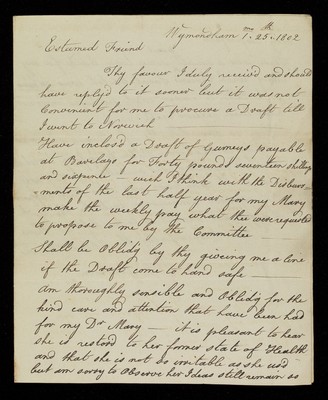 Wymondham 7 mo 25th 1802
Esteemed Friend
Thy favour I duly receiv'd and should
have reply'd to it sooner but it was not
Convenient for me to procure a Draft till
I went to Norwich
Have inclos'd a Draft of Gurneys payable
at Barclays for Forty pounds seventeen shillings
and sixpence – wich I think with the Disburs-
-ments of the last half year for my Mary
make the weekly pay what thee were requested
to propose to me by the Committee
Shall be Obledg by thy giving me a line
if the Draft come to hand safe
Am thoroughly sensible and Obledg for the
kind care and attention that have been had
for my Dr Mary – it is pleasant to hear
she is restor'd to her former state of Health
and that she is not so irritable as she us'd
but am sorry to Observe her Ideas still remain as